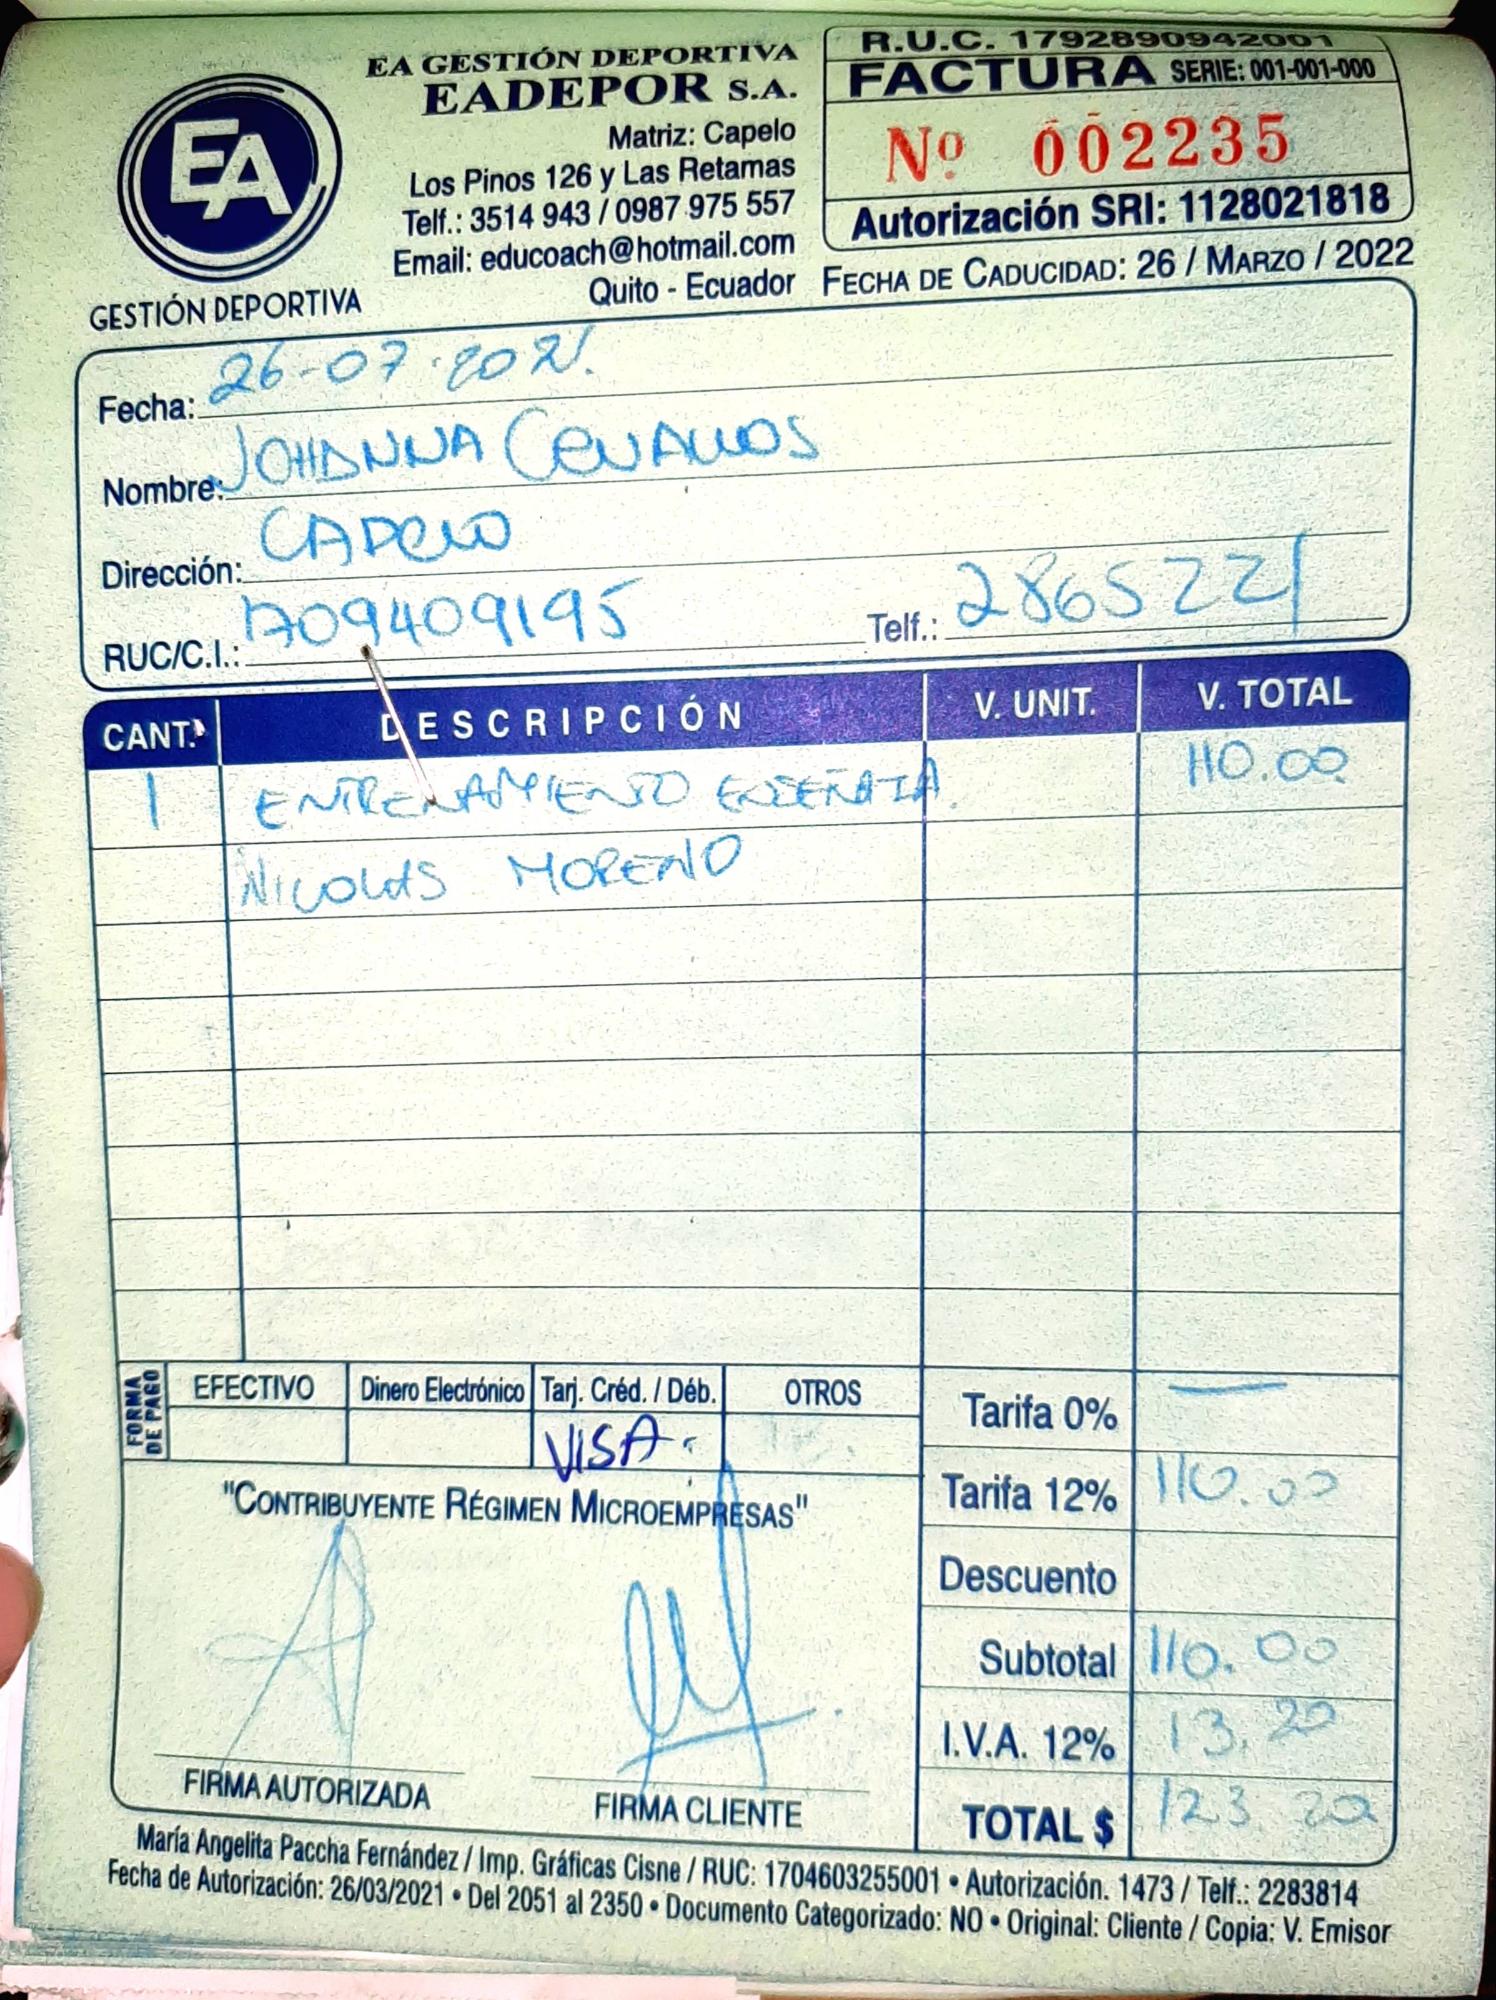 EA GESTIÓN DEPORTIVA
EADEPOR S.A.
Matriz: Capelo
Los Pinos 126 y Las Retamas
Telf.: 3514 943 / 0987 975 557
Email: educoach@hotmail.com
Quito - Ecuador
EA
GESTIÓN DEPORTIVA
R.U.C. 1792890942001
FACTURA SERIE: 001-001-000
Nº 002235
Autorización SRI: 1128021818
FECHA DE CADUCIDAD: 26 / MARZO / 2022
Fecha: 26-07-2021.
Nombre: JOHANNA CEVALLOS
Dirección: CAPELO
RUC/C.I.: 1709409195 Telf.: 2865221
CANT. DESCRIPCIÓN V. UNIT. V. TOTAL
1 ENTRENAMIENTO ENSEÑATA 110.00
NICOLAS MORENO
FORMA DE PAGO
EFECTIVO Dinero Electrónico Tarj. Créd. / Déb. OTROS
VISA.
Tarifa 0% —
Tarifa 12% 110.00
Descuento
Subtotal 110.00
I.V.A. 12% 13.20
TOTAL $ 123.20
"CONTRIBUYENTE RÉGIMEN MICROEMPRESAS"
FIRMA AUTORIZADA FIRMA CLIENTE
María Angelita Paccha Fernández / Imp. Gráficas Cisne / RUC: 1704603255001 • Autorización. 1473 / Telf.: 2283814
Fecha de Autorización: 26/03/2021 • Del 2051 al 2350 • Documento Categorizado: NO • Original: Cliente / Copia: V. Emisor